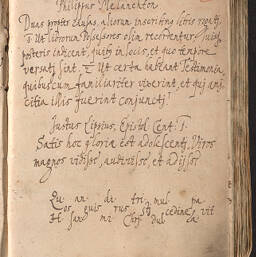 Philippus Melanchton
Duas propter causas, aliorum inscribing libris rogati,
I. Ut librorum Possessores olim, recordentur, suisq
posteris indicent, quib9 in locis, et quo tempore
versati sint. 2. Ut certa habeant Testimonia,
quibuscum familiariter vixerint, et qui ami-
citia illis fuerint conjuncti.
Justus Lipsius, Epistol. Cent. I.
Satis hoc gloriæ est adolescenti, Viros
magnos vidisse, audivisse, et adiisse
Qu an di tri mul pa
os guis rus sti cedine vit
H san mi Chri dul la